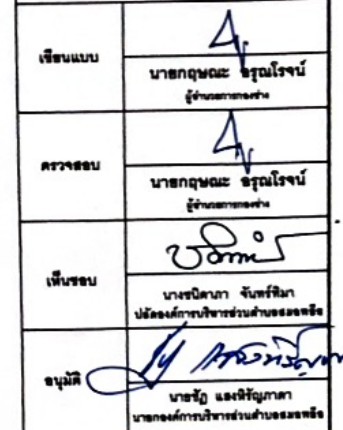 เขียนแบบ
นายกฤษณะ อรุณโรจน์
ผู้อำนวยการกองช่าง
ตรวจสอบ
นายกฤษณะ อรุณโรจน์
ผู้อำนวยการกองช่าง
เห็นชอบ
นางชนิดาภา จันทร์ทิมา
ปลัดองค์การบริหารส่วนตำบลสมอพลือ
อนุมัติ
นายชัฏ แสงหิรัญภาดา
นายกองค์การบริหารส่วนตำบลสมอพลือ